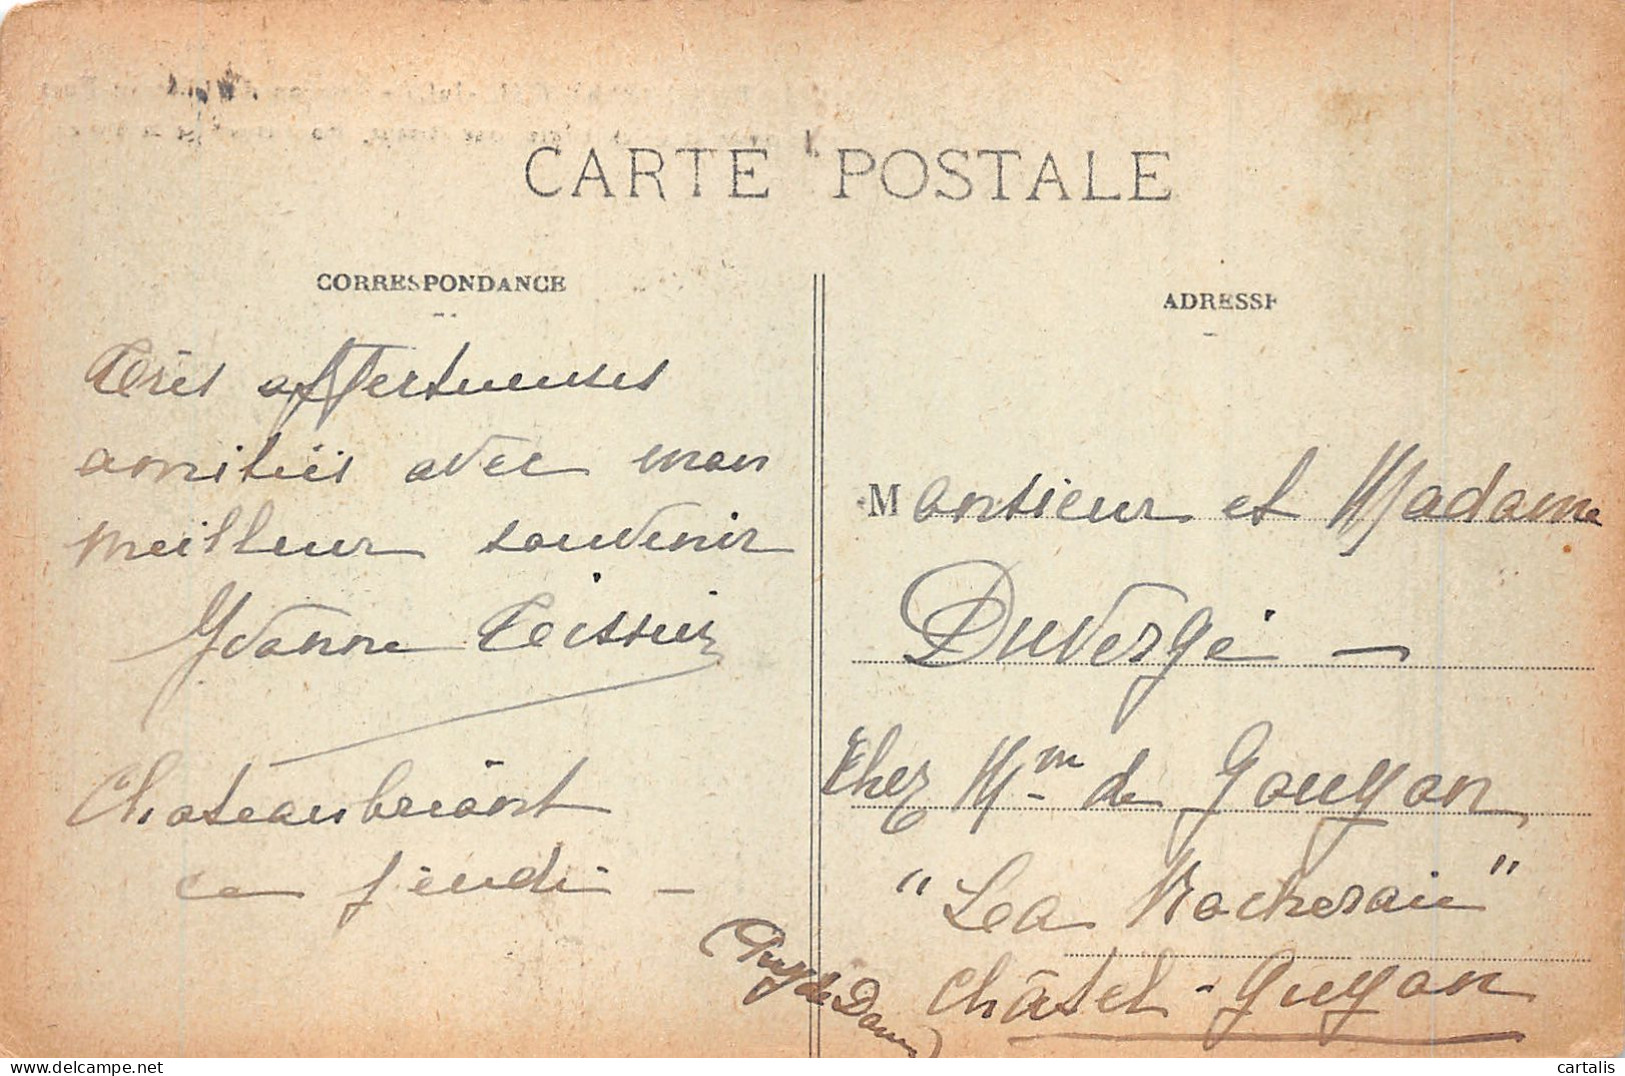 CARTE POSTALE
CORRESPONDANCE
Très affectueuses
amitiés avec mon
meilleur souvenir
Yvonne Teissier
Chateaubriant
ce jeudi -
ADRESSE
Monsieur et Madame
Duvergé -
Chez Mm de Gouyon
"La Rocheraie"
Châtel-Guyon
(Puy de Dome)
cartalis